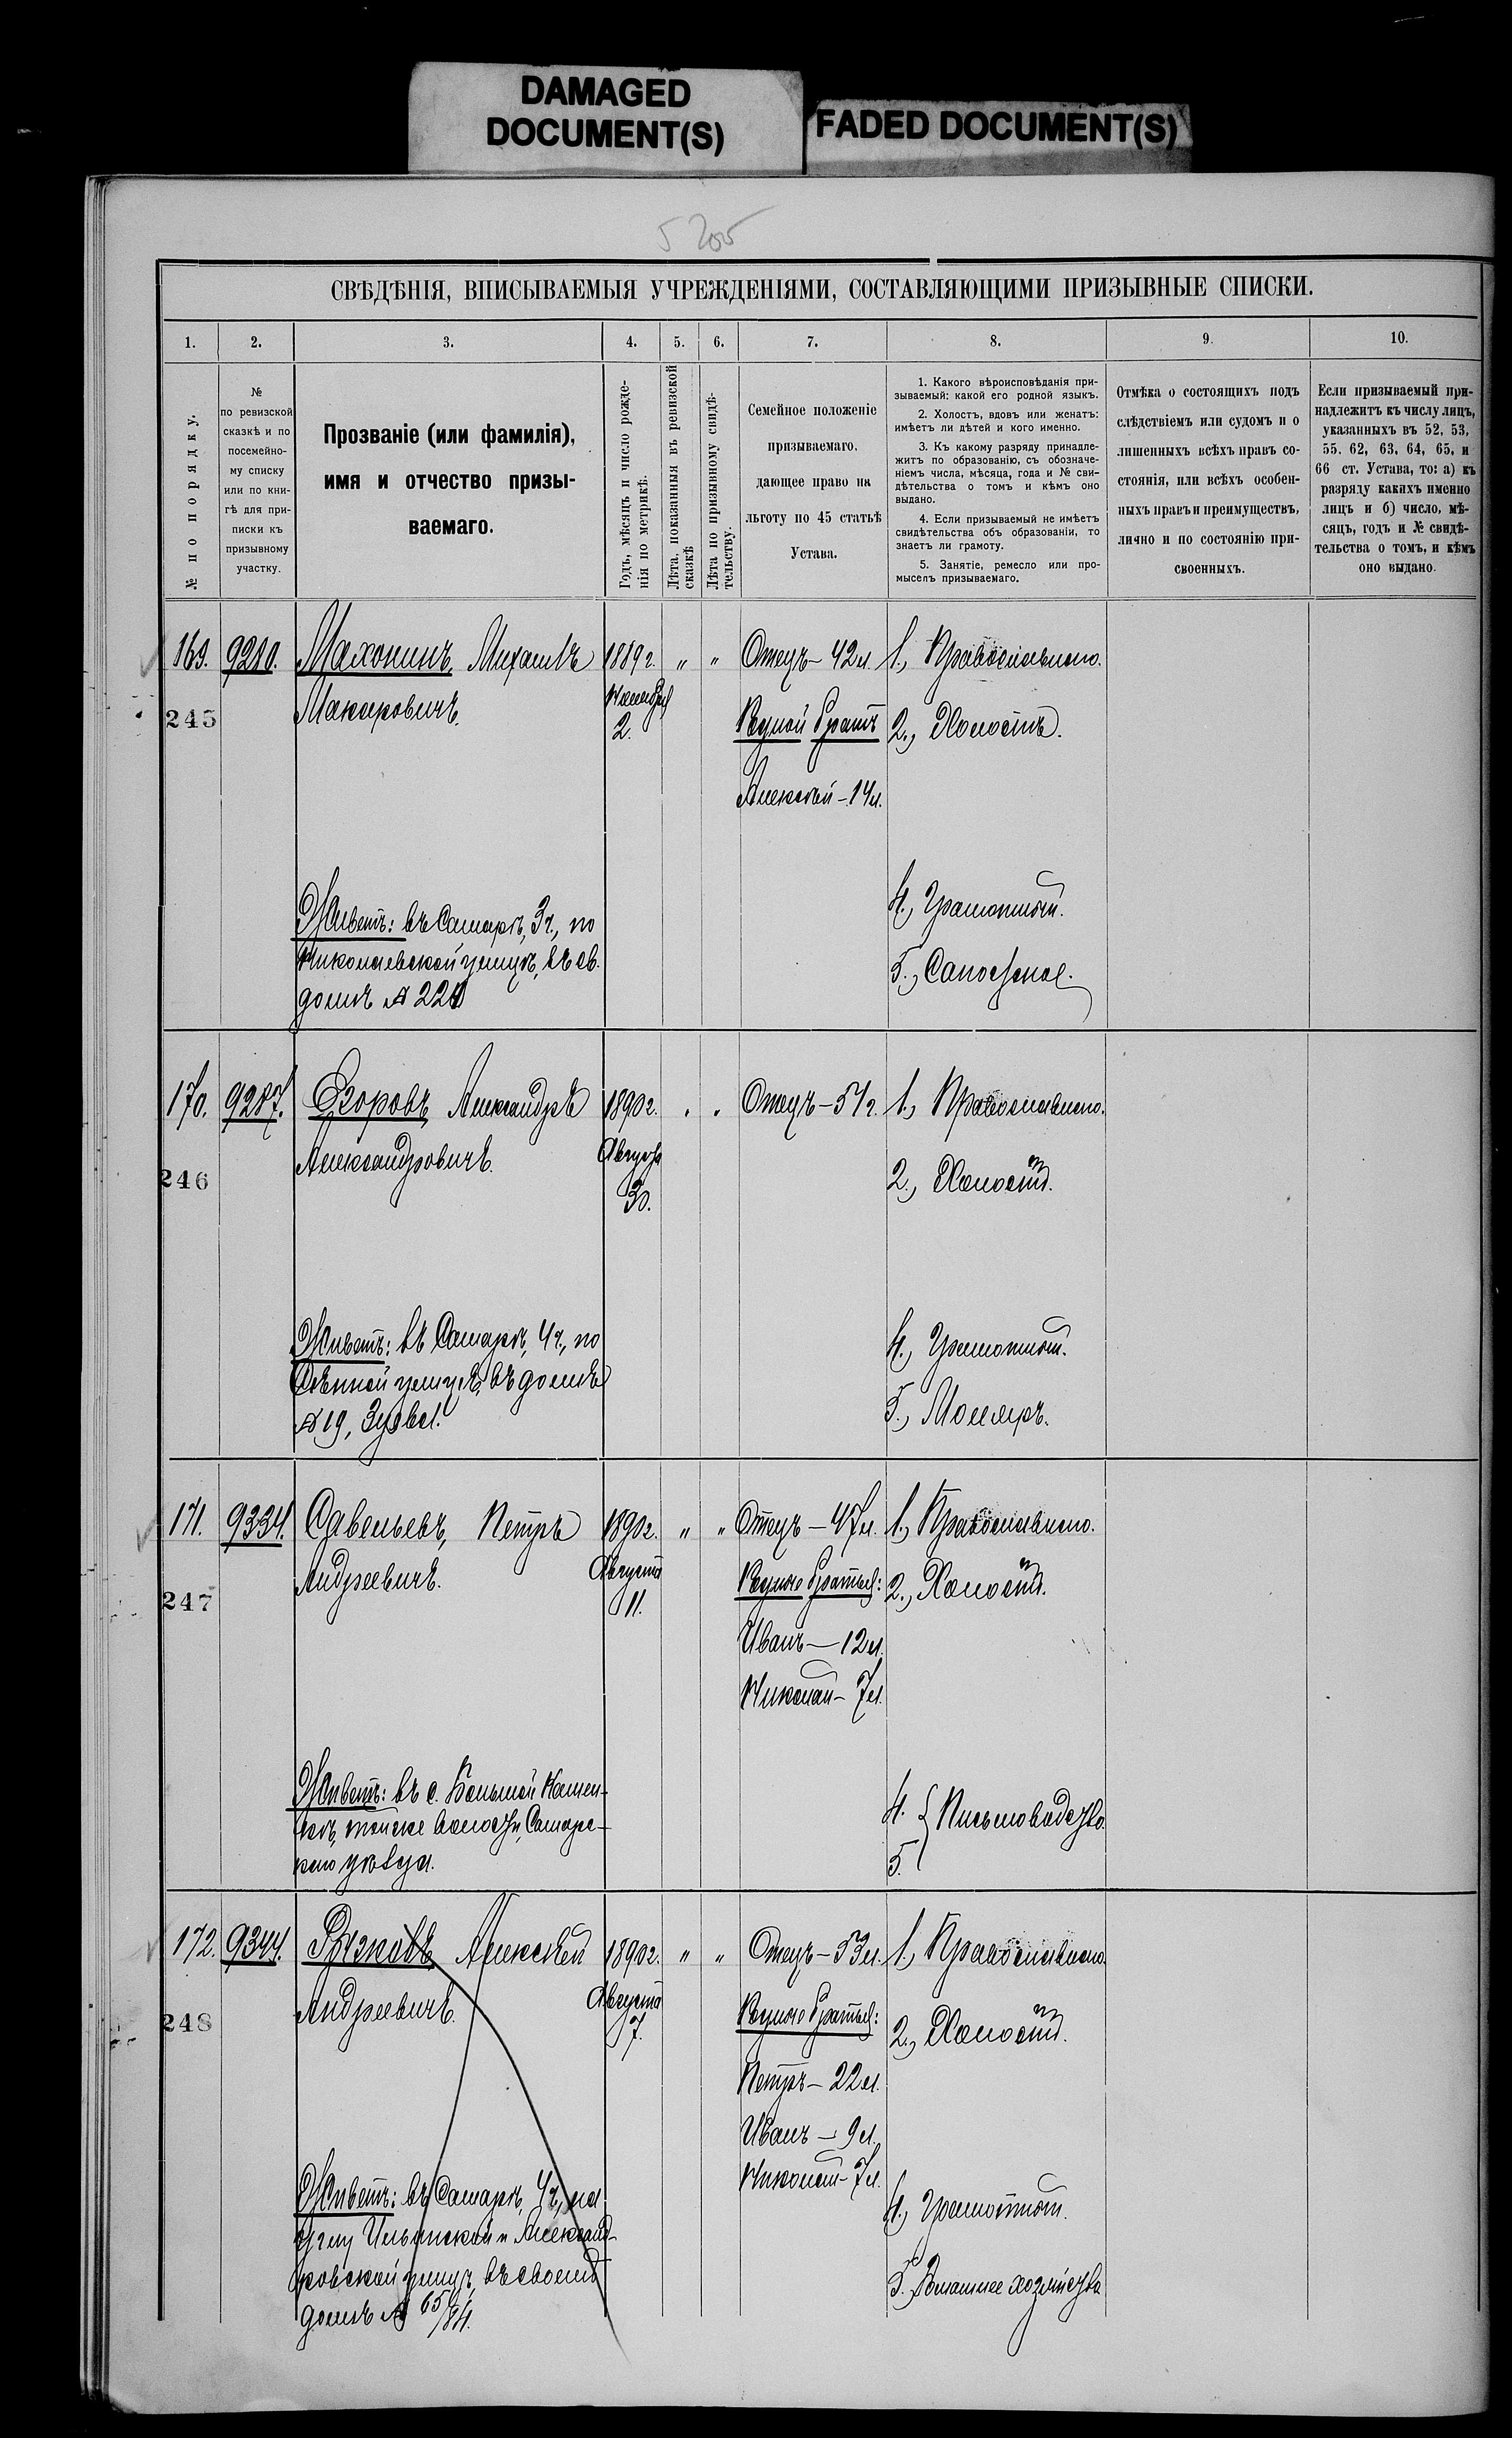 DAMAGED
DOCUMENT(S)
FADED DOCUMENT(S)
5 205
СВѢДѢНІЯ, ВПИСЫВАЕМЫЯ УЧРЕЖДЕНІЯМИ, СОСТАВЛЯЮЩИМИ ПРИЗЫВНЫЕ СПИСКИ.
1. 2. 3. 4. 5. 6. 7. 8. 9. 10.
№ по порядку.
№
по ревизской
сказкѣ и по
посемейно-
му списку
или по кни-
гѣ для при-
писки къ
призывному
участку.
Прозваніе (или фамилія),
имя и отчество призы-
ваемаго.
Годъ, мѣсяцъ и число рожде-
нія по метрикѣ.
Лѣта, показанныя въ ревизской
сказкѣ
Лѣта по призывному свидѣ-
тельству.
Семейное положеніе
призываемаго,
дающее право на
льготу по 45 статьѣ
Устава.
1. Какого вѣроисповѣданія при-
зываемый; какой его родной языкъ.
2. Холостъ, вдовъ или женатъ:
имѣетъ ли дѣтей и кого именно.
3. Къ какому разряду принадле-
житъ по образованію, съ обозначе-
ніемъ числа, мѣсяца, года и № сви-
дѣтельства о томъ и кѣмъ оно
выдано.
4. Если призываемый не имѣетъ
свидѣтельства объ образованіи, то
знаетъ ли грамоту.
5. Занятіе, ремесло или про-
мыселъ призываемаго.
Отмѣка о состоящихъ подъ
слѣдствіемъ или судомъ и о
лишенныхъ всѣхъ правъ со-
стоянія, или всѣхъ особен-
ныхъ правъ и преимуществъ,
лично и по состоянію при-
своенныхъ.
Если призываемый при-
надлежитъ къ числу лицъ,
указанныхъ въ 52, 53,
55, 62, 63, 64, 65, и
66 ст. Устава, то: а) къ
разряду какихъ именно
лицъ и б) число, мѣ-
сяцъ, годъ и № свидѣ-
тельства о томъ, и кѣмъ
оно выдано.
169. 9280. Махонинъ, Михаилъ 1889 г. " " Отецъ - 42 л. 1., Православнаго.
245 Макаровичъ. Ноября
2. Родной братъ 2., Холостъ.
Алексѣй - 14 л.
Живетъ: въ Самарѣ, 3 ч., по 4., Грамотный.
Николаевской улицѣ, въ св. 5., Сапожное.
домѣ № 220
170. 9287. Егоровъ, Александръ 1890 г. " " Отецъ - 51 г. 1., Православнаго.
246 Александровичъ. Августа
30. 2., Холостъ.
Живетъ: въ Самарѣ, 4 ч., по 4., Грамотный.
Сѣнной улицѣ, въ домѣ 5., Маляръ.
№ 19, Зуева.
171. 9334. Савельевъ, Петръ 1890 г. " " Отецъ - 47 л. 1., Православнаго.
247 Андреевичъ. Августа
11. Родные братья: 2., Холостъ.
Иванъ - 12 л.
Николай - 7 л.
Живетъ: въ с. Большой Камен- 4.
кѣ, тойже волости, Самарс- Письмоводство.
каго уѣзда. 5.
172. 9344. Рязковъ, Алексѣй 1890 г. " " Отецъ - 53 л. 1., Православнаго.
248 Андреевичъ. Августа
7. Родные братья: 2., Холостъ.
Петръ - 22 л.
Иванъ - 9 л.
Николай - 7 л.
Живетъ: въ Самарѣ, 4 ч., на 4., Грамотный.
углу Ильинской и Александ-
ровской улицъ, въ своемъ 5., Домашнее хозяйство
домѣ № 65/84.